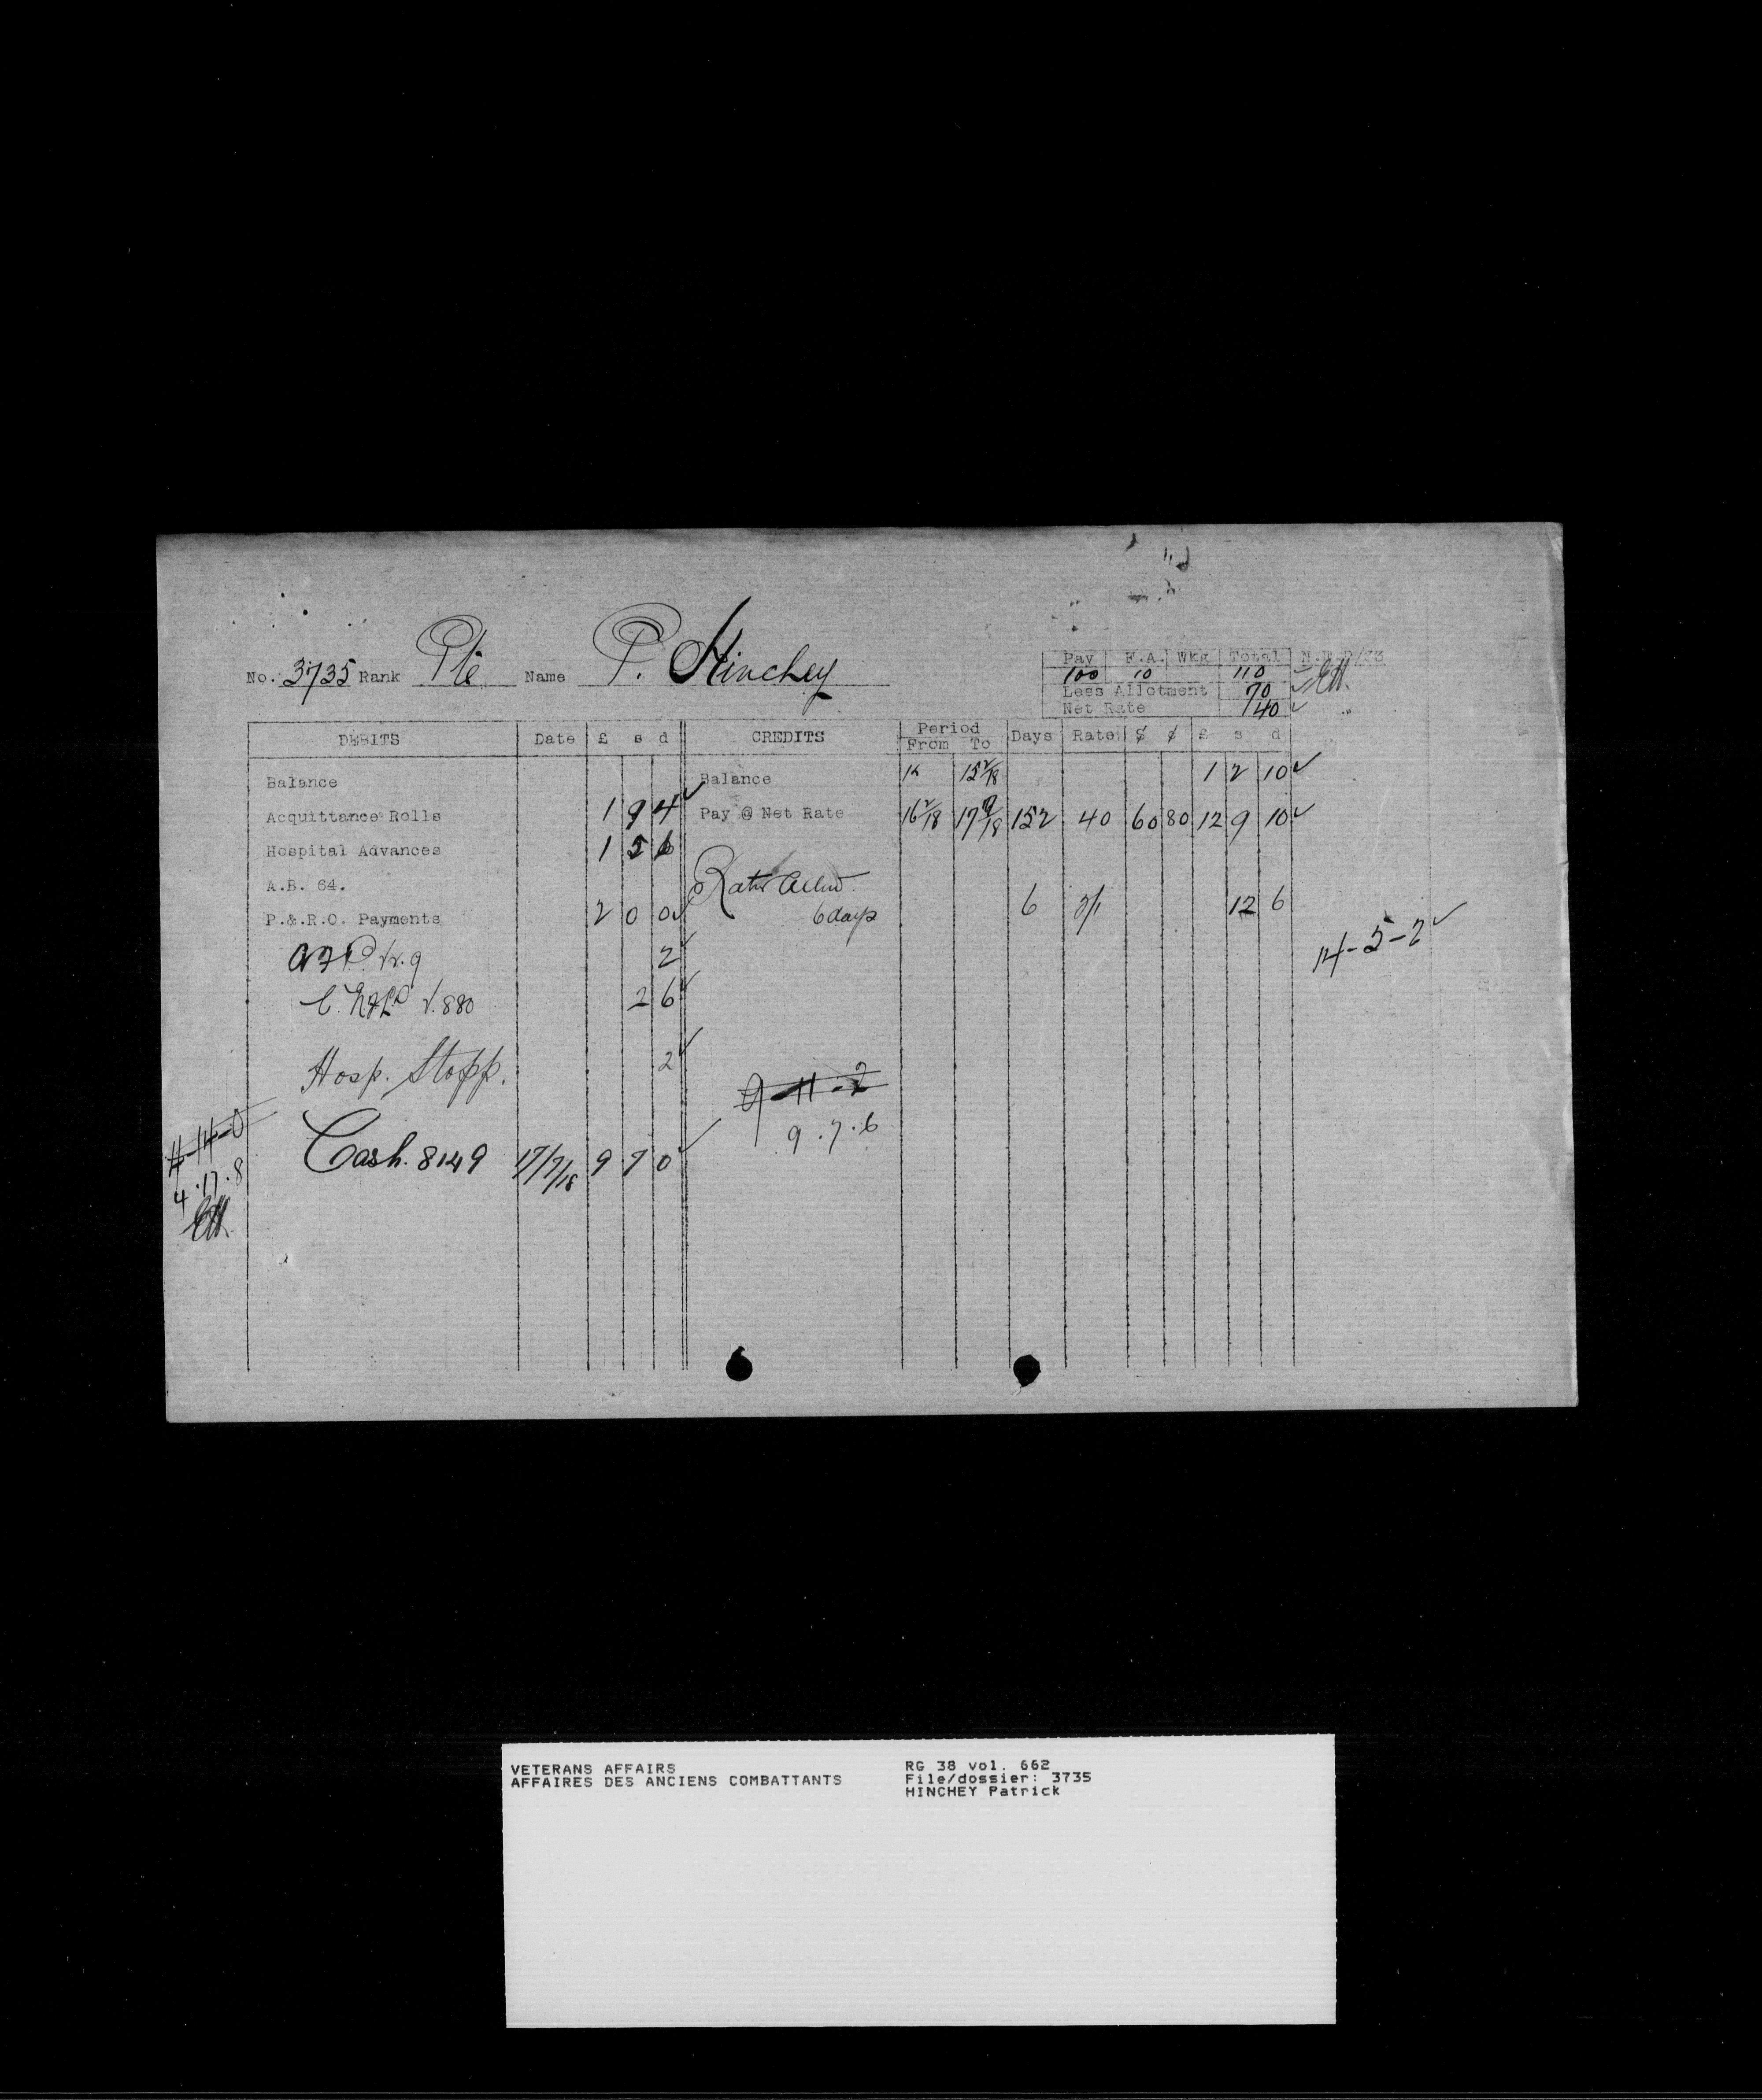 No. 3735 Rank Pte Name P. Hinchey
Pay F.A. Wkg Total N.F.P/33
100 10 110
Less Allotment 70
Net Rate 40
DEBITS Date £ s d CREDITS Period From To Days Rate $ ¢ £ s d
Balance Balance 15 2/18 1 2 10
Acquittance Rolls 1 9 4 Pay @ Net Rate 16 2/18 17 7/18 152 40 60 80 12 9 10
Hospital Advances 1 5 6
A.B. 64.
P.&.R.O. Payments 2 0 0
6 days 6 2/1 12 6
14-5-2
2
2 6
Hosp. Stopp. 2
9-11-2
9.7.6
4-14-0
4.17.8
Cash. 8149 17/7/18 9 7 0
VETERANS AFFAIRS
AFFAIRES DES ANCIENS COMBATTANTS
RG 38 vol. 662
File/dossier: 3735
HINCHEY Patrick